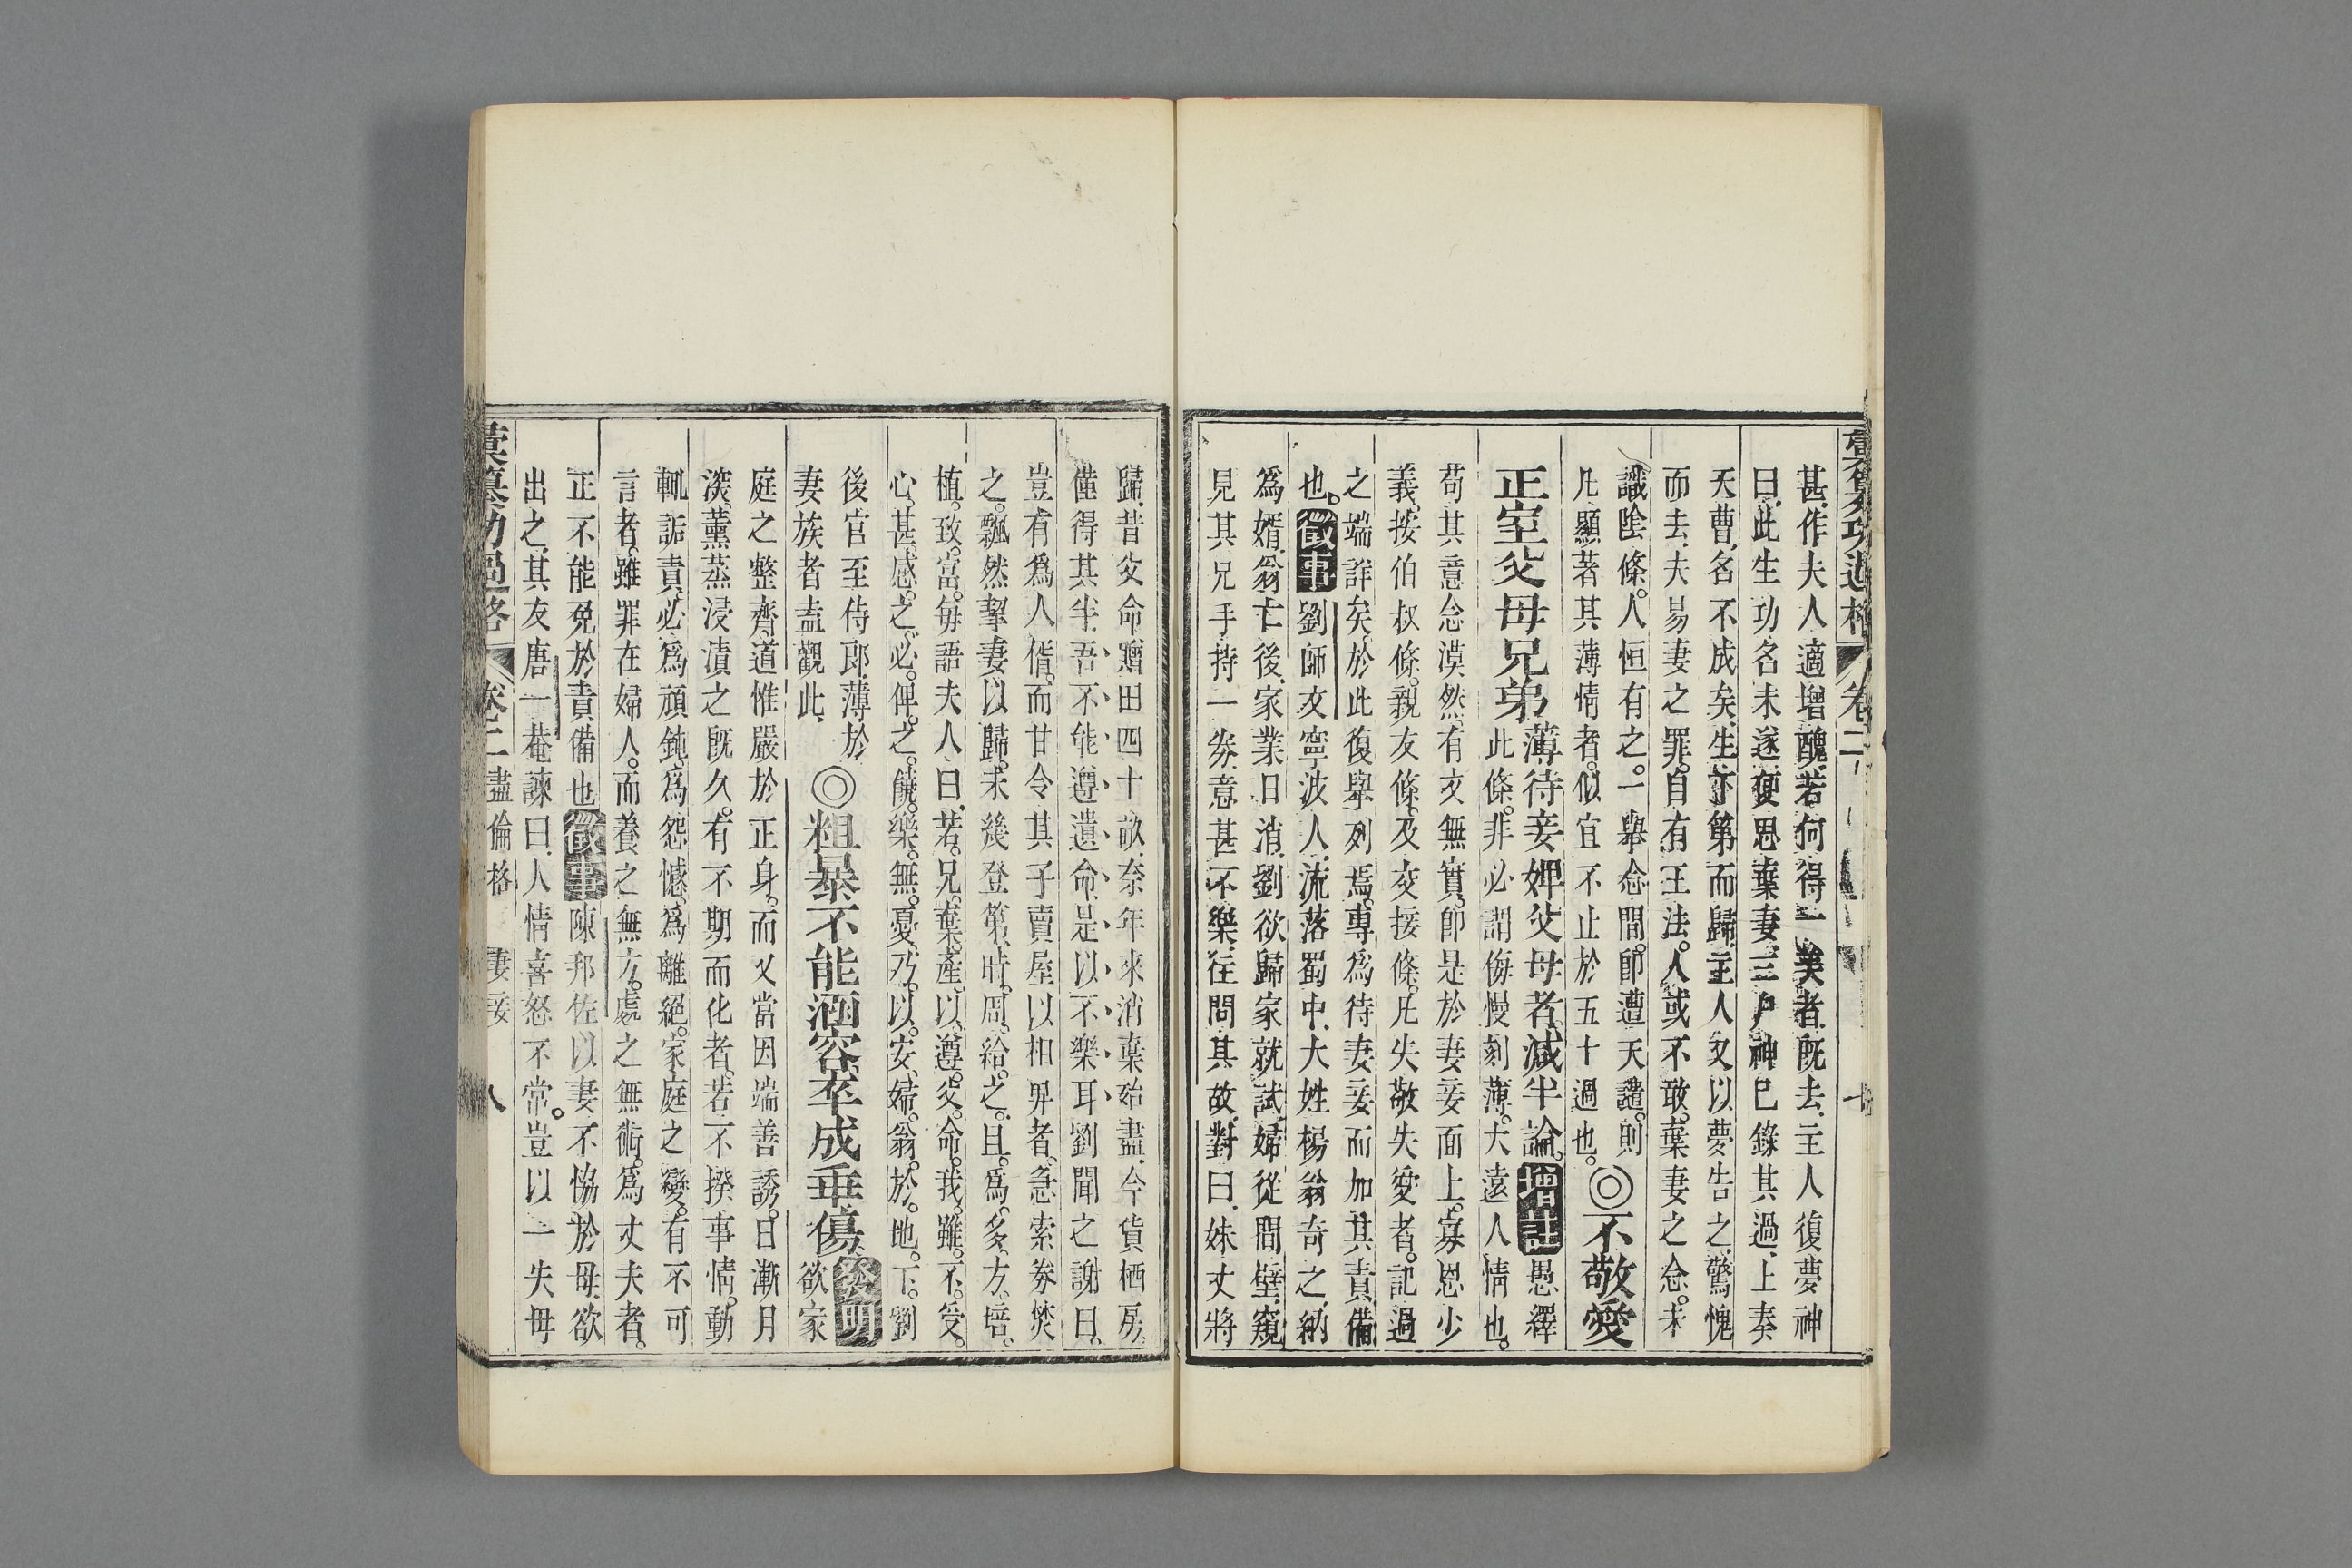 彙纂功過格 卷二 七
甚作夫人適增醜若何得一美者既去主人復夢神
曰此生功名未遂便思棄妻三尸神已錄其過上奏
天曹名不成矣生亦第而歸主人又以夢告之驚愧
而去夫易妻之罪自有王法人或不敢棄妻之念未
識陰條人恒有之一舉念間即遭天譴則
凡顯著其薄情者似宜不止於五十過也
◎不敬愛
正室父母兄弟
薄待妾婢父母者減半論增註愚繹
此條非必謂侮慢刻薄大遠人情也
苟其意念漠然有文無實即是於妻妾面上寡恩少
義按伯叔條親友條及交接條凡失敬失愛者記過
之端詳矣於此復舉列焉專為待妻妾而加其責備
也徵事劉師文寧波人流落蜀中大姓楊翁奇之納
爲婿翁亡後家業日消劉欲歸家就試婦從間壁窺
見其兄手持一券意甚不樂往問其故對曰妹丈將
歸昔父命贈田四十畝奈年來消棄殆盡今貨栖房
僅得其半吾不能遵遺命是以不樂耳劉聞之謝曰
豈有爲人偦而甘令其子賣屋以相畀者急索券焚
之飄然挈妻以歸未幾登第時周給之且爲多方培
植致富每語夫人曰若兄棄產以遵父命我雖不受
心甚感之必俾之饒樂無憂乃以安婦翁於地下劉
後官至侍郎薄於
妻族者盍觀此
◎粗暴不能涵容卒成乖傷
發明
欲家
庭之整齊道惟嚴於正身而又當因端善誘日漸月
深薰蒸浸漬之既久有不期而化者若不揆事情動
輒詬責必爲頑鈍爲怨憾爲離絕家庭之變有不可
言者雖罪在婦人而養之無方處之無術爲丈夫者
正不能免於責備也徵事陳邦佐以妻不恊於母欲
出之其友唐一菴諫曰人情喜怒不常豈以一失母
彙纂功過格 卷二 盡倫格 妻妾 八